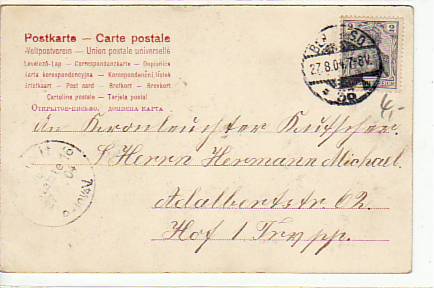 Postkarte – Carte postale
Weltpostverein – Union postale universelle
Levelező-Lap – Correspondenzkarte – Dopisnice
Karta korespondencyjna – Korespondenční lístek
Briefkaart – Post card – Brefkort – Brevkort
Cartolina postale – Tarjeta postal
Открытое письмо,
2
SO
22.8.04
7-8
36
4,-
An Kronleuchter Kutscher
Herrn Hermann Michael
Adalbertstr. 62
Hof 1 Trepp.